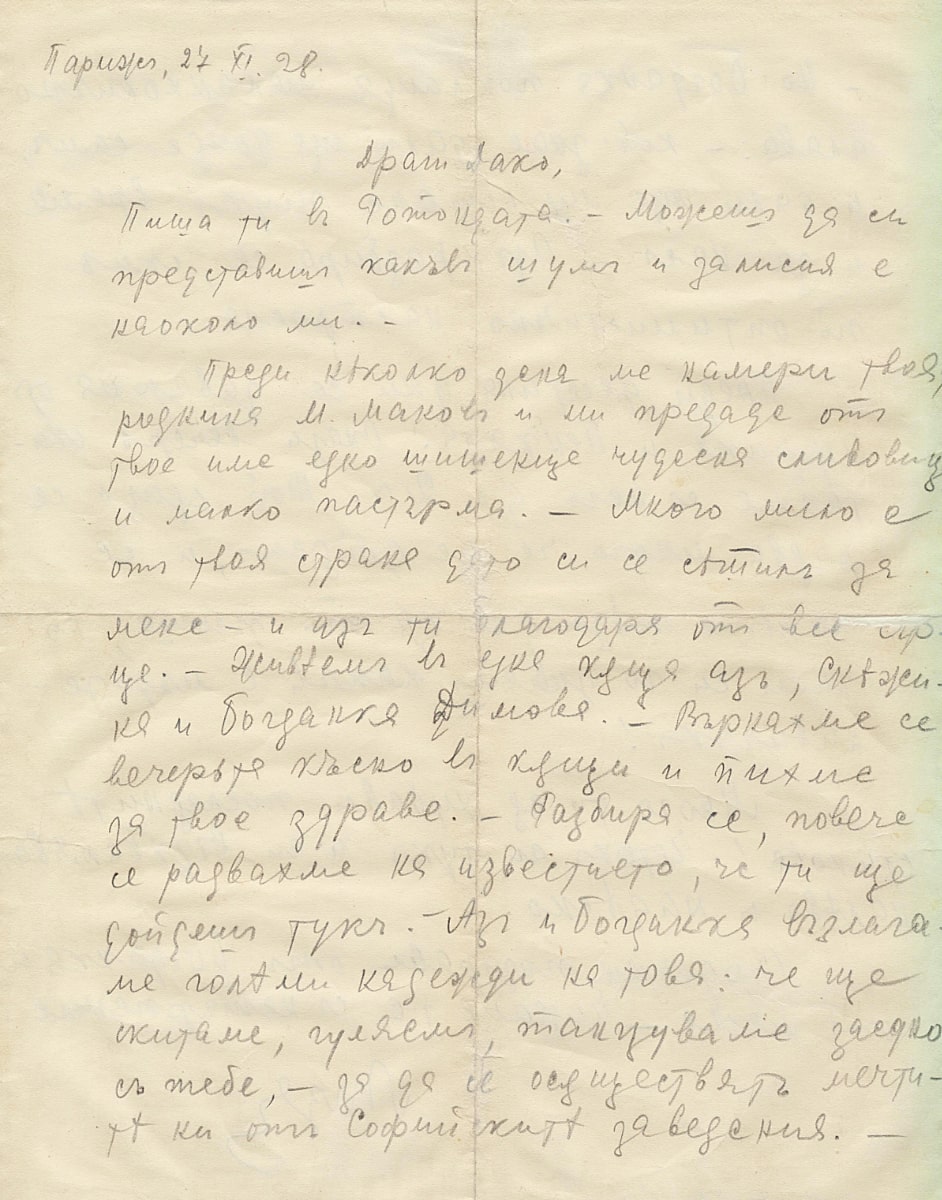 Парижъ, 27 XI. 28.
Драги Дако,
Пиша ти въ Ротондата. – Можешъ да си
представишъ какъвъ шумъ и записия е
наоколо ми. –
Преди нѣколко деня ме намери твоя
роднина М. Маковъ и ми предаде отъ
твое име едно шишенце чудесня сливовиц
и малко пастърма. – Много мило е
отъ твоя страна дето си се сѣтилъ за
мене – и азъ ти благодаря отъ все сър-
це. – Живѣемъ въ една кѫща азъ, Снѣжи-
на и Богданка Димова. – Върнахме се
вечерьта късно въ кѫщи и пихме
за твое здраве. – Разбира се, повече
се радвахме на известието, че ти ще
дойдешъ тукъ. – Азъ и Богданка възлага-
ме голѣми надежди на това: че ще
скитаме, гуляемъ, танцуваме заедно
съ тебе, – за да се осѫществятъ мечти-
тѣ ни отъ Софийскитѣ заведения. –